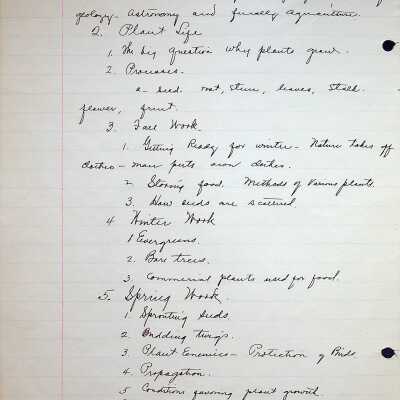 geology. Astronomy and finally Aquaculture.
2. Plant Life
1. The big question why plants grow.
2. Processes.
a - seed. root, stem, leaves, stalk.
flower, fruit.
3. Fall Work.
1. Getting Ready for winter - Nature takes off
clothes - man puts on clothes.
2. Storing food. Methods of various plants.
3. How seeds are scattered.
4 Winter Work
1 Evergreens.
2. Bare trees.
3. Commercial plants used for food.
5. Spring Work.
1. Sprouting seeds.
2. Budding twigs.
3 Plant Enemies - Protection of Birds.
4. Propagation.
5 Conditions favoring plant growth.